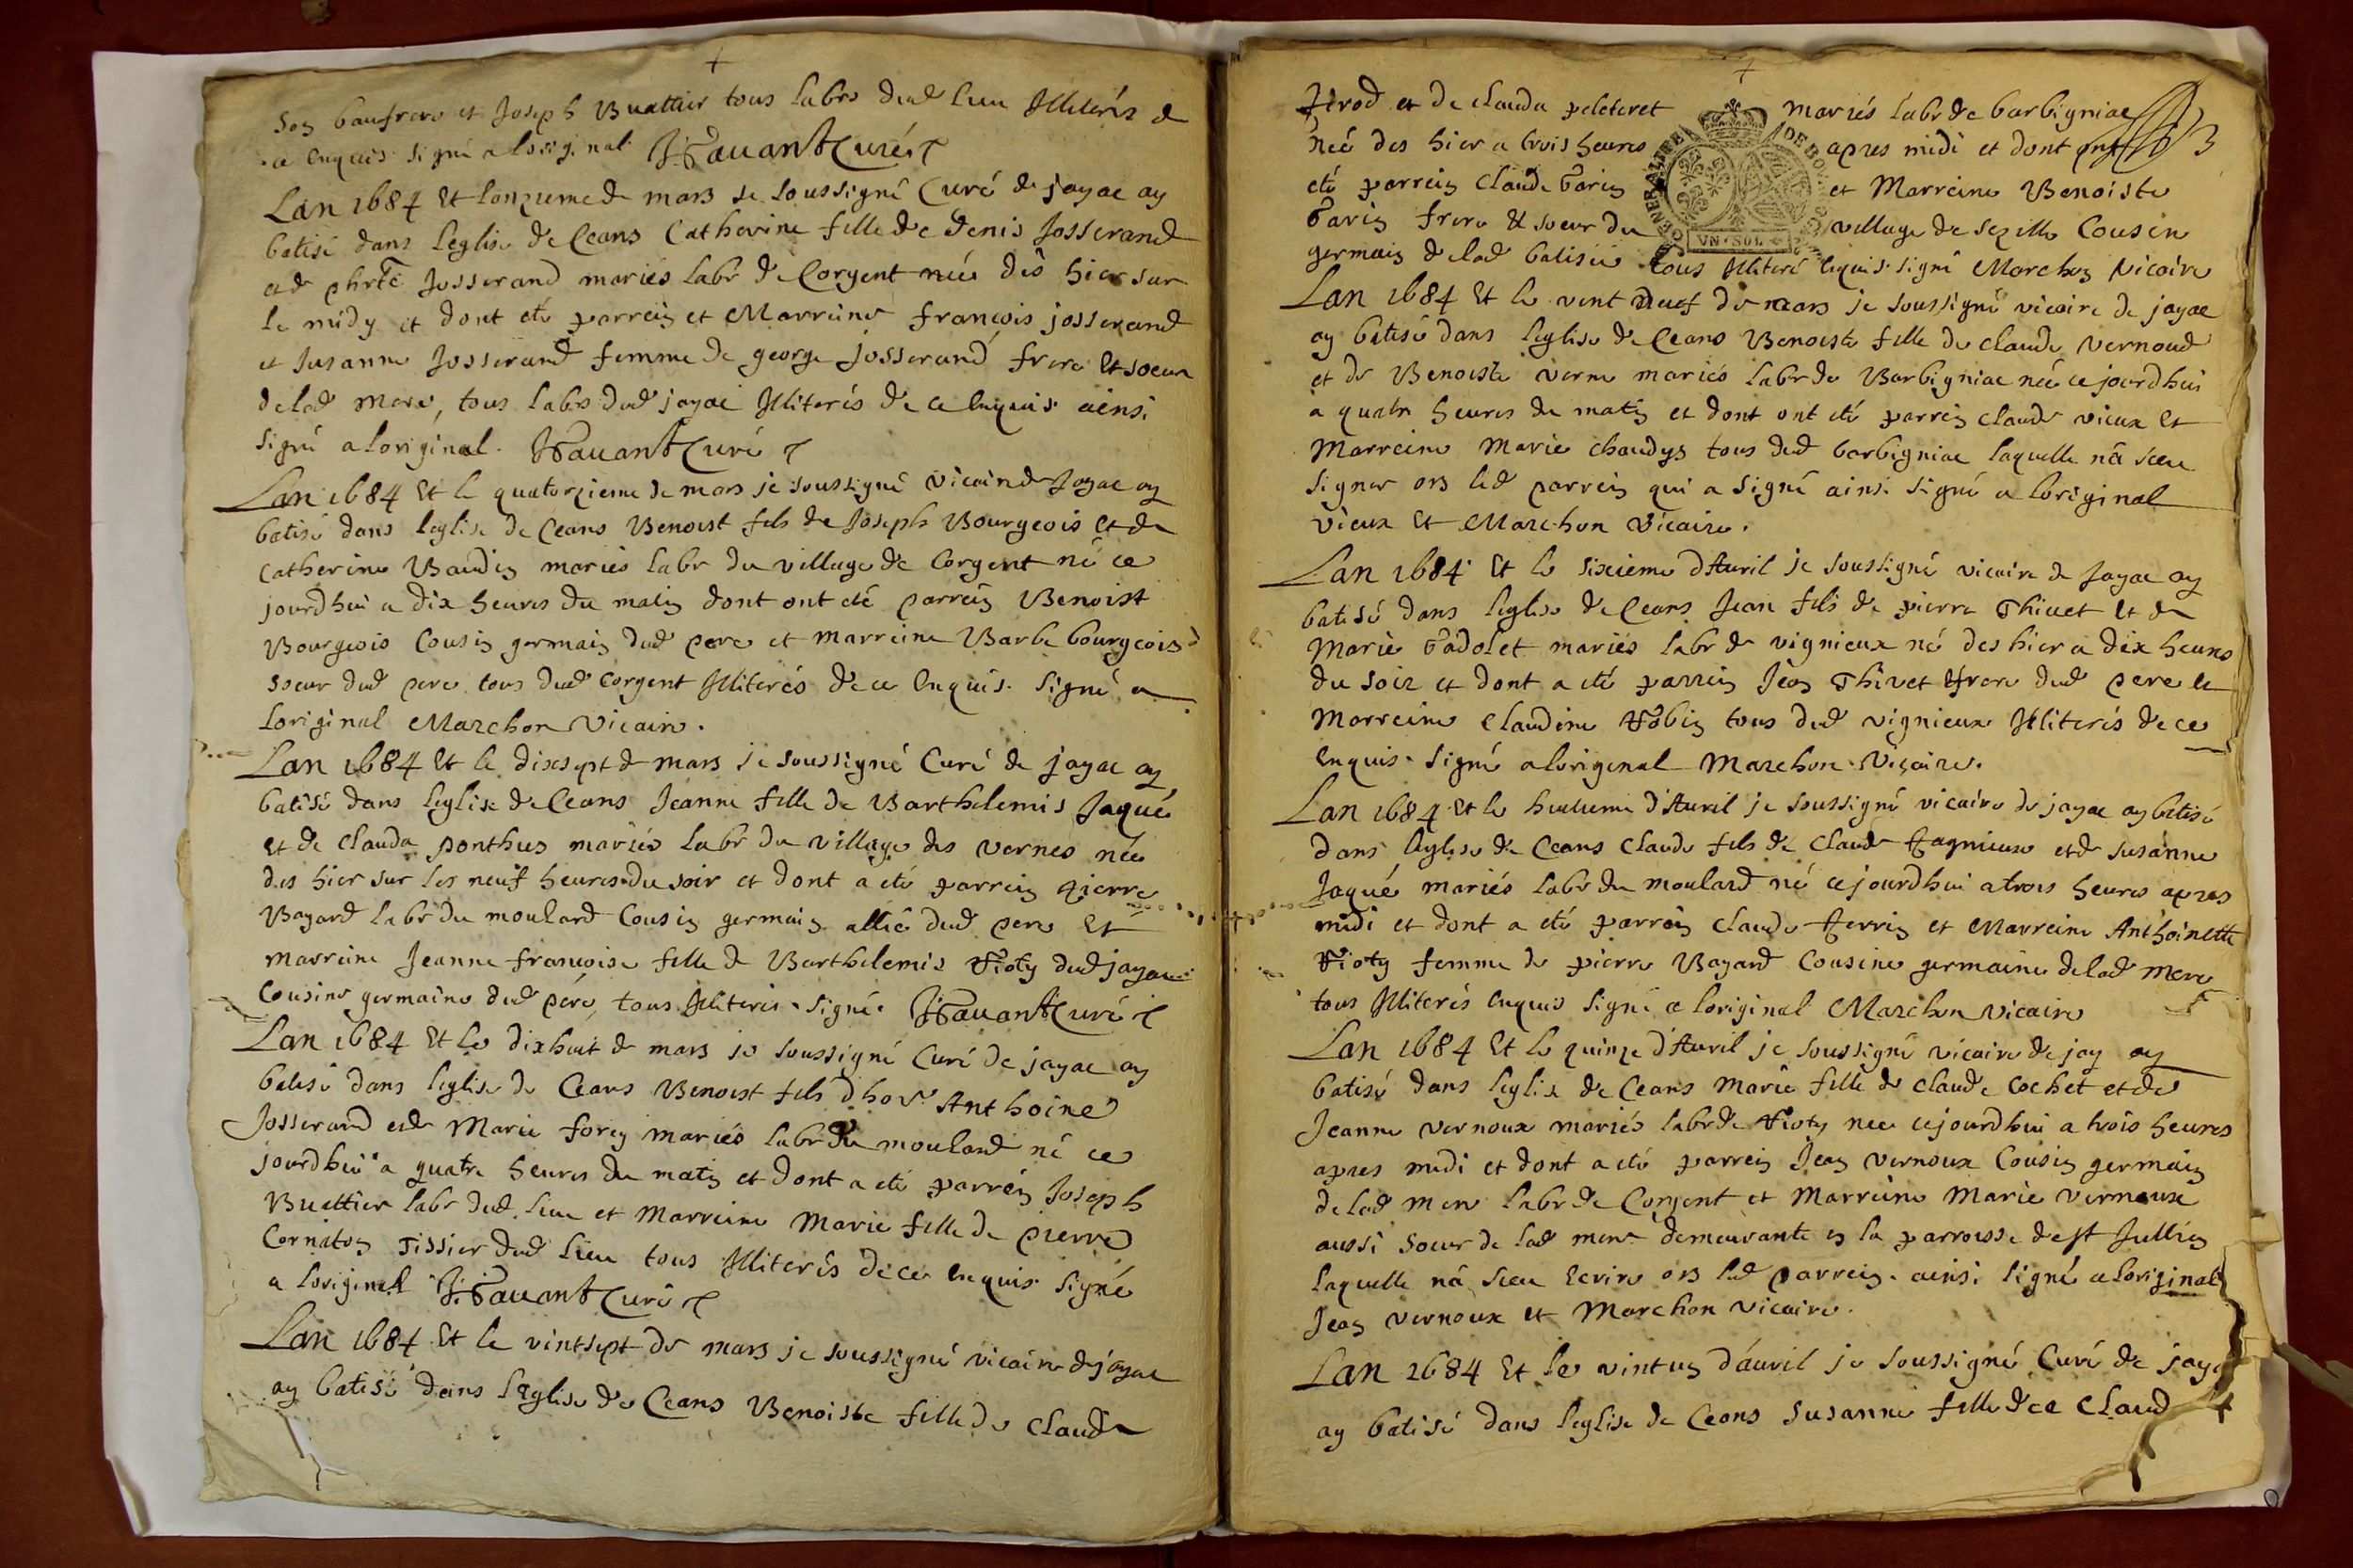 son baufrere et Joseph Buattier tous labrs dud lieu Illiterés de
ce enquis signé a loriginal Curé
Lan 1684 Et lonzieme de mars je soussigné Curé de jayac ay
batisé dans leglise de Ceans Catherine fille de Denis Josserand
et de Josserand mariés labr de Corgent née dès hier sur
le midy et dont eté parrein et Marreine françois josserand
et Susanne Josserand femme de george josserand frere Et soeur
de lad mere, tous labrs dud jayac Illiterés de ce Enquis ainsi
signé a loriginal. Curé
Lan 1684 Et le quatorzieme de mars je soussigné vicaire de Jayac ay
batisé dans leglise de Ceans Benoist fils de Joseph Bourgeois et de
Catherine Baudin mariés labr du village de Corgent né ce
jourdhui a dix heures du matin dont ont eté parrein Benoist
Bourgeois Cousin germain dud pere et marreine Barbe bourgeois
soeur dud pere tous dud Corgent Illiterés de ce Enquis. Signé a
loriginal Marchon Vicaire.
Lan 1684 Et le dixsept de mars je soussigné Curé de jayac ay
batisé dans leglise de Ceans Jeanne fille de Barthelemis Jaqué
et de Clauda ponthus mariés labr du village des vernes née
des hier sur les neuf heures du soir et dont a eté parrein pierre
Bayard labr du moulard Cousin germain allié dud pere Et
marreine Jeanne françoise fille de Barthelemis fioty dud jayac
Cousine germaine dud pére, tous Illiterés. signé. Curé
Lan 1684 Et le dixhuit de mars je soussigné Curé de jayac ay
batisé dans leglise de Ceans Benoist fils dhor Anthoine
Josserand et de Marie forey mariés labr du moulard né ce
jourdhui a quatre heures du matin et dont a eté parrein Joseph
Buattier labr dud. lieu et Marreine Marie fille de pierre
Cornaton Tissier dud lieu tous Illiterés de ce Enquis signé
a loriginal Curé
Lan 1684 Et le vintsept de mars je soussigné vicaire de jayac
ay batisé dans lEglise de Ceans Benoiste fille de Claude
et de Clauda peleteret mariés labr de barbigniac
née des hier a trois heures apres midi et dont ont
eté parrein Claude Parin et Marreine Benoiste
Parin frere & soeur du village de sezille Cousin
germain de lad batisée tous Illiteré Enquis. signé Marchon Vicaire
GENERALITE DE BOURGOGNE
VN SOL
Lan 1684 Et le vent neuf de mars je soussigné vicaire de jayac
ay batisé dans leglise de Ceans Benoiste fille de Claude vernoud
et de Benoiste verne mariés labr de Barbigniac née ce jourdhui
a quatre heures du matin et dont ont eté parrein Claude vieux et
Marreine Marie chaudys tous dud barbigniac laquelle nâ sceu
signer ors led parrein qui a signé ainsi signé a loriginal
vieux Et Marchon Vicaire.
Lan 1684 Et le sixieme dAvril je soussigné vicaire de Jayac ay
batisé dans leglise de Ceans Jean fils de pierre Thivet et de
Marie Padolet mariés labr de vignieux né des hier a dix heures
du soir et dont a eté parrein Jean Thivet frere dud pere et
Marreine Claudine tous dud vignieux Illiterés de ce
Enquis. Signé a loriginal Marchon Vicaire.
Lan 1684 Et le huitieme dAvril je soussigné vicaire de jayac ay batisé
dans leglise de Ceans Claude fils de Claude fagnieux et de Susanne
Jaqué mariés labr du moulard né ce jourdhui a trois heures apres
midi et dont a eté parrein Claude ferrin et Marreine Anthoinette
fioty femme de pierre Bayard Cousine germaine de lad Mere
tous Illiterés Enquis signé a loriginal Marchon Vicaire
Lan 1684 Et le quinze dAvril je soussigné vicaire de jay ay
batisé dans leglise de Ceans Marie fille de Claude Cochet et de
Jeanne vernoux mariés labr de fioty nee cejourdhui a trois heures
apres midi et dont a eté parrein Jean vernoux Cousin germain
de lad mere labr de Corgent et Marreine Marie Vernoux
aussi soeur de lad mere demeurante en la parroisse de st Jullien
laquelle nâ sceu Ecrire ors led parrein. ainsi signé a loriginal
Jean vernoux et Marchon Vicaire.
Lan 1684 Et le vintun dávril je soussigné Curé de jayac
ay batisé dans leglise de Ceans Susanne fille de Claude